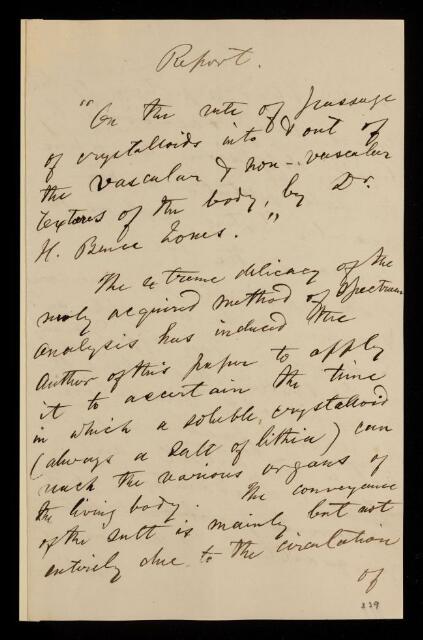 Report.
"On the rate of passage
of crystalloids into & out of
the vascular & non-vascular
textures of the body, by Dr.
H. Bence Jones."
The extreme delicacy of the
newly acquired method of Spectrum
analysis has induced the
author of this paper to apply
it to ascertain the time
in which a soluble crystalloid
(always a salt of lithia) can
reach the various organs of
the living body. The conveyance
of the salt is mainly but not
entirely due to the circulation
of
239